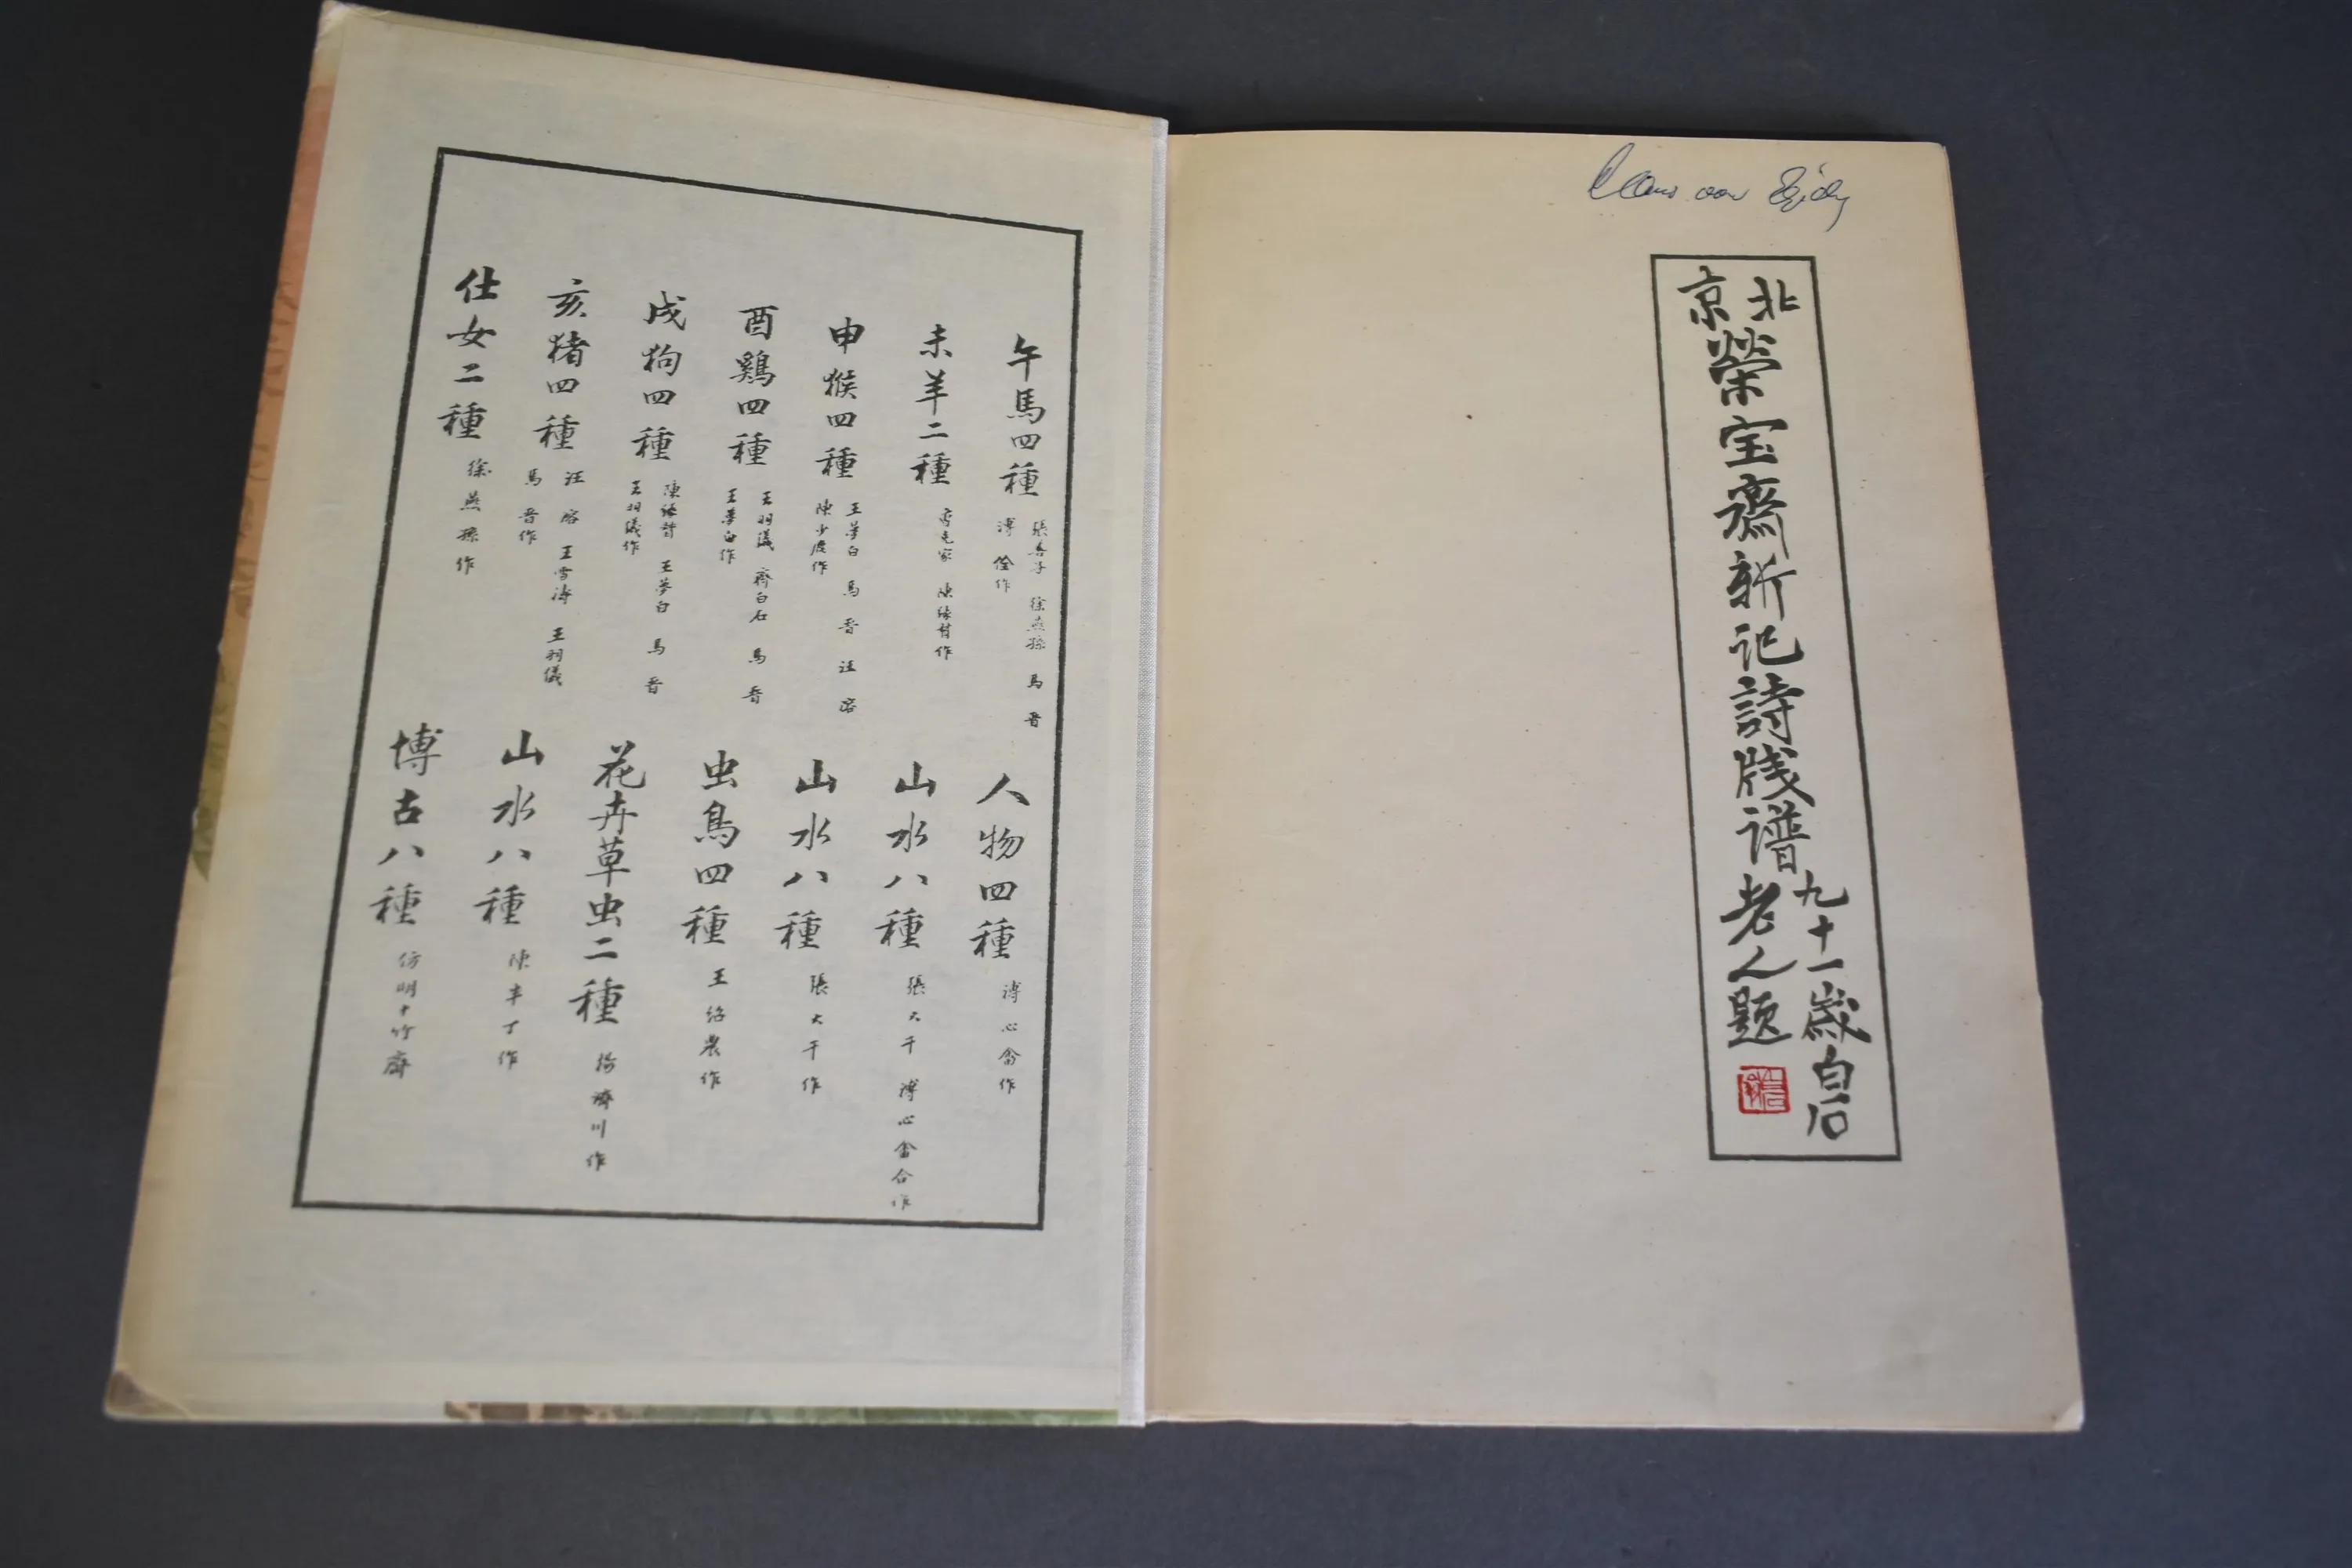 北京榮宝齋新记詩牋谱
九十一歲白石
老人題
午馬四種
張善子 徐燕孫 馬晋
溥佺作
未羊二種
陳緣督作
申猴四種
王夢白 馬晋 汪溶
陳少鹿作
酉鷄四種
王羽儀 齊白石 馬晋
王夢白作
戌狗四種
陳緣督 王夢白 馬晋
王羽儀作
亥猪四種
汪溶 王雪涛 王羽儀
馬晋作
仕女二種
徐燕孫作
人物四種
溥心畬作
山水八種
張大千 溥心畬合作
山水八種
張大千作
虫鳥四種
花卉草虫二種
楊濟川作
山水八種
陳半丁作
博古八種
仿明十竹齋